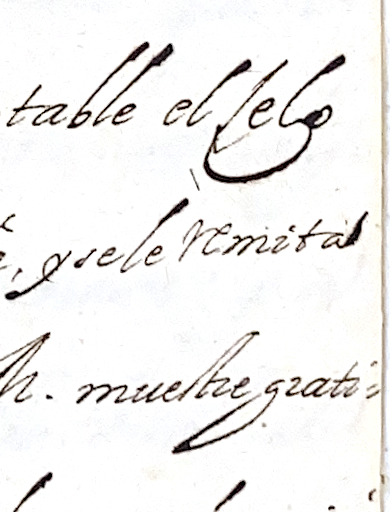 table el Zelo
, y se le remita
M. muestre grati=